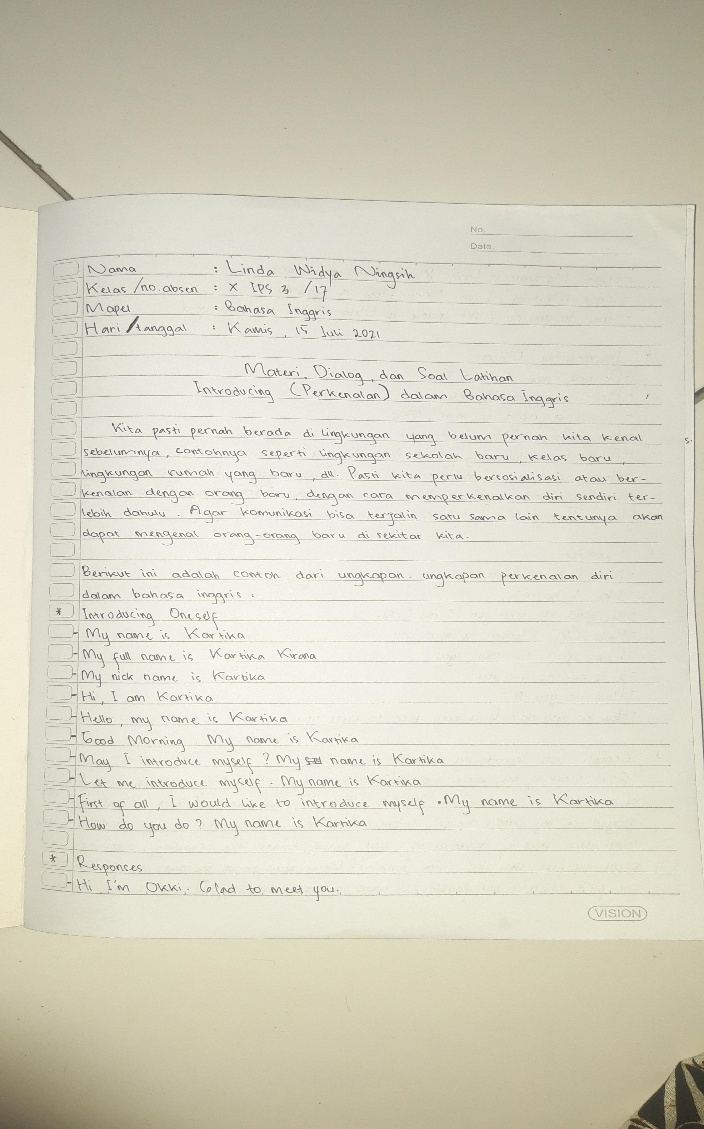 No.
Date.
Nama : Linda Widya Ningsih
Kelas /no.absen : X IPS 3 /17
Mapel : Bahasa Inggris
Hari/tanggal : Kamis, 15 Juli 2021
Materi, Dialog, dan Soal Latihan
Introducing (Perkenalan) dalam Bahasa Inggris
Kita pasti pernah berada di lingkungan yang belum pernah kita kenal
sebelumnya, contohnya seperti lingkungan sekolah baru, kelas baru
lingkungan rumah yang baru, dll. Pasti kita perlu bertosialisasi atau ber-
kenalan dengan orang baru, dengan cara memperkenalkan diri sendiri ter-
lebih dahulu. Agar komunikasi bisa terjalin satu sama lain tentunya akan
dapat mengenal orang-orang baru di sekitar kita.
Berikut ini adalah contoh dari ungkapan-ungkapan perkenalan diri
dalam bahasa inggris :
* Introducing Oneself
- My name is Kartika
- My full name is Kartika Kirana
- My nick name is Kartika
- Hi, I am Kartika
- Hello, my name is Kartika
- Good Morning My name is Kartika
- May I introduce myself ? My name is Kartika
- Let me introduce myself. My name is Kartika
- First of all, I would like to introduce myself. My name is Kartika
- How do you do ? My name is Kartika
* Responses
- Hi I'm Okki. Glad to meet you.
VISION